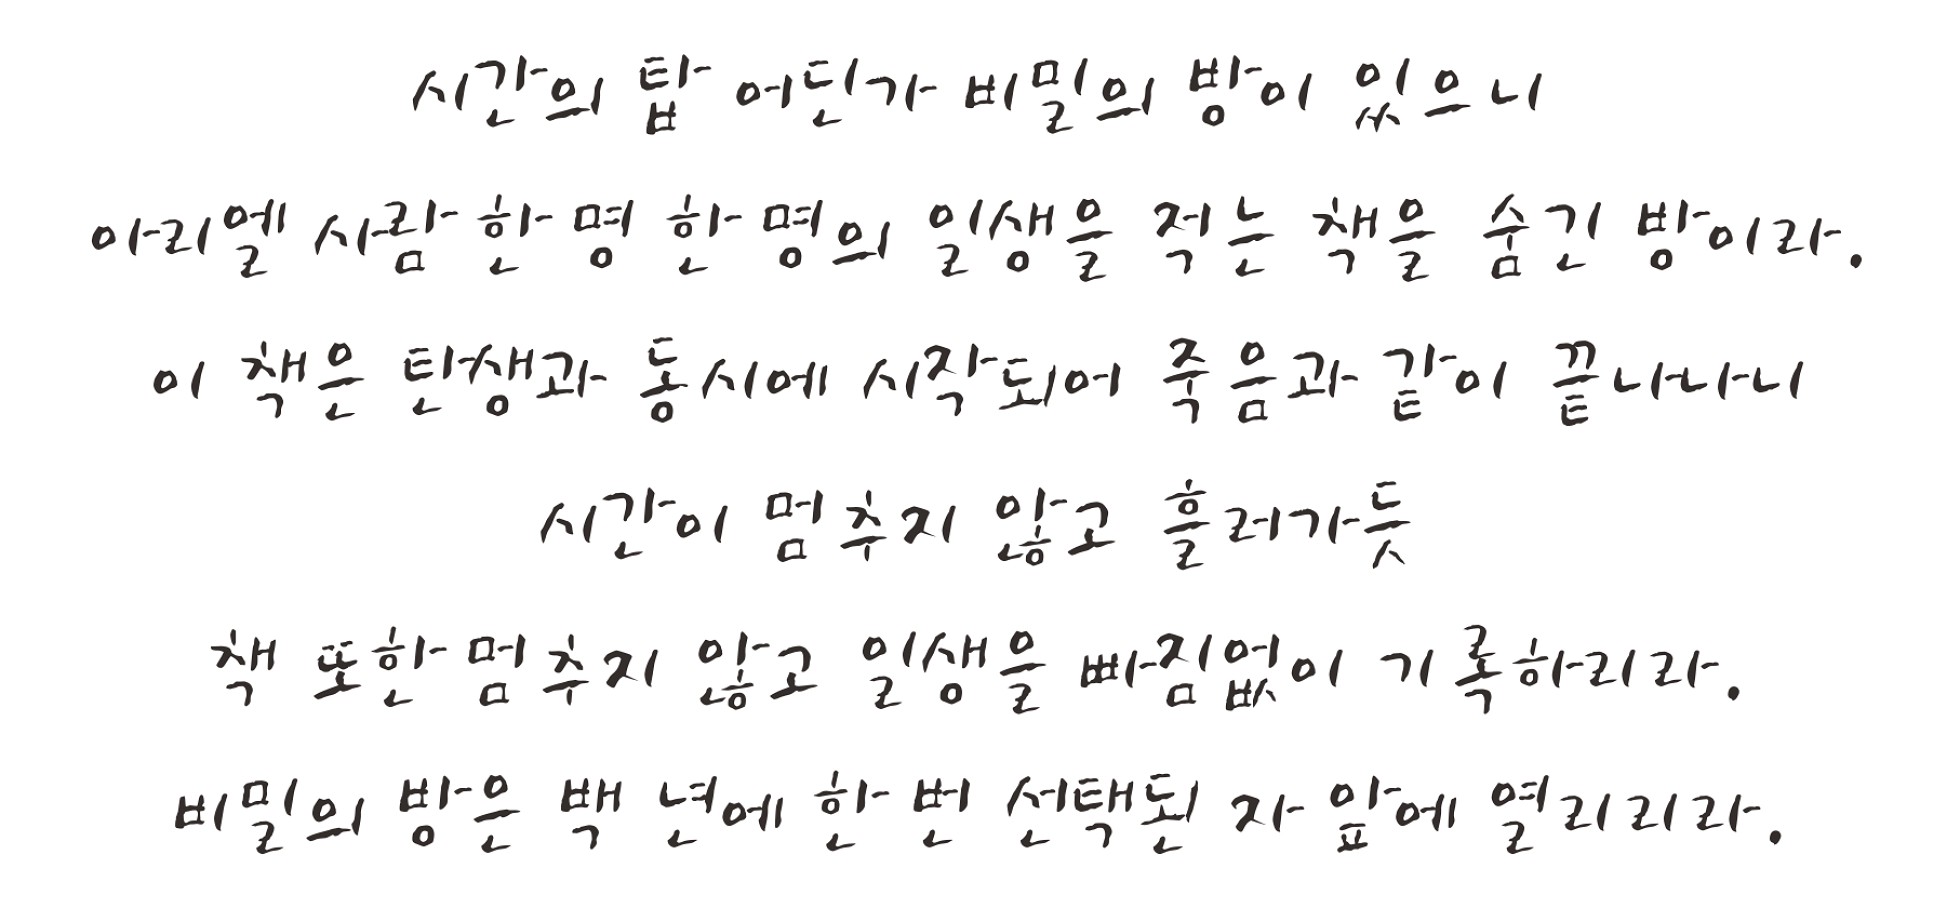 시간의 탑 어딘가 비밀의 방이 있으니
아리엘 사람 한 명 한 명의 일생을 적는 책을 숨긴 방이라.
이 책은 탄생과 동시에 시작되어 죽음과 같이 끝나나니
시간이 멈추지 않고 흘러가듯
책 또한 멈추지 않고 일생을 빠짐없이 기록하리라.
비밀의 방은 백 년에 한 번 선택된 자 앞에 열리리라.